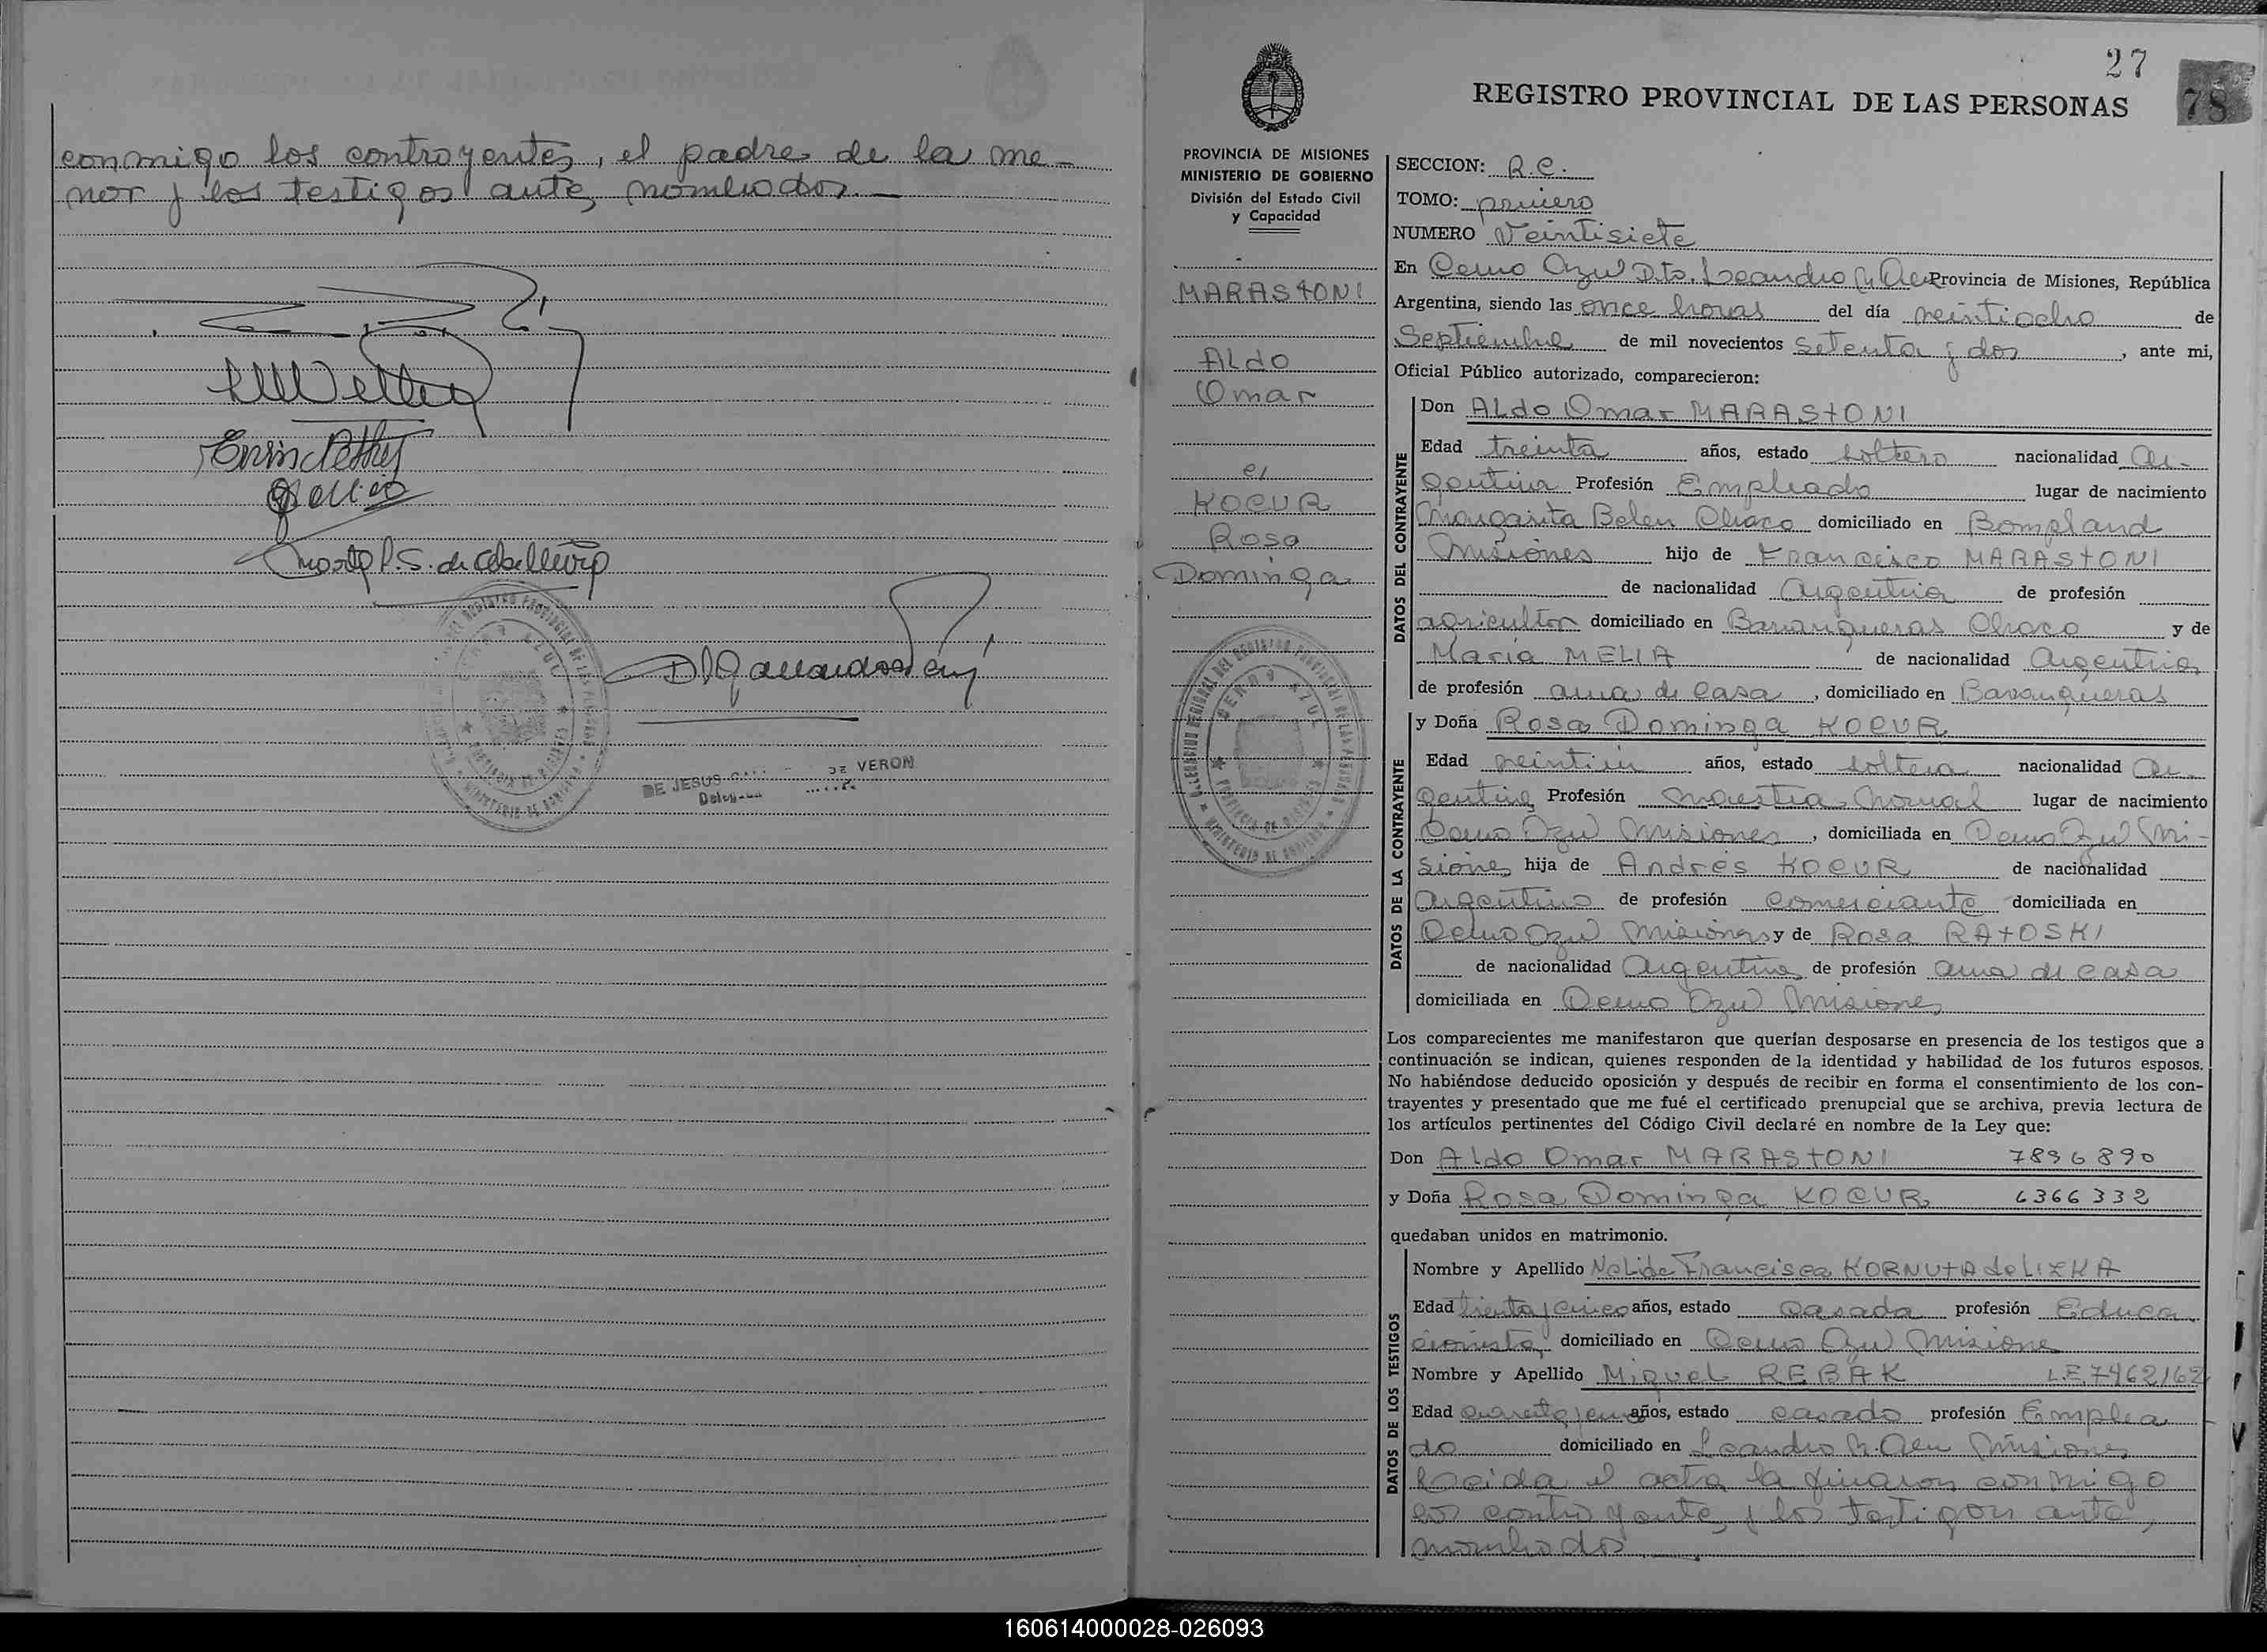 conmigo los contrayentes, el padre de la me-
nor y los testigos antes nombrados.
DE JESUS DE VERON
27
78
REGISTRO PROVINCIAL DE LAS PERSONAS
PROVINCIA DE MISIONES
MINISTERIO DE GOBIERNO
División del Estado Civil
y Capacidad
MARASTONI
Aldo
Omar
c/
KOCUR
Rosa
Dominga
SECCION: R.C.
TOMO: primero
NUMERO Veintisiete
En Cerro Azul Dto. Leandro N. Alem Provincia de Misiones, República
Argentina, siendo las once horas del día veintiocho de
Septiembre de mil novecientos Setenta y dos, ante mi,
Oficial Público autorizado, comparecieron:
DATOS DEL CONTRAYENTE
Don Aldo Omar MARASTONI
Edad treinta años, estado soltero nacionalidad Ar-
gentina Profesión Empleado lugar de nacimiento
Margarita Belen Chaco domiciliado en Bompland
Misiones hijo de Francisco MARASTONI
de nacionalidad Argentina de profesión
agricultor domiciliado en Barranqueras Chaco y de
María MELIA de nacionalidad Argentina
de profesión ama de casa, domiciliado en Barranqueras
DATOS DE LA CONTRAYENTE
y Doña Rosa Dominga KOCUR
Edad años, estado soltera nacionalidad Ar-
gentina Profesión Maestra Normal lugar de nacimiento
Cerro Azul Misiones, domiciliada en Cerro Azul Mi-
siones hija de Andrés KOCUR de nacionalidad
Argentina de profesión Comerciante domiciliada en
Cerro Azul Misiones y de Rosa RATOSKI
de nacionalidad Argentina de profesión ama de casa
domiciliada en Cerro Azul Misiones
Los comparecientes me manifestaron que querían desposarse en presencia de los testigos que a
continuación se indican, quienes responden de la identidad y habilidad de los futuros esposos.
No habiéndose deducido oposición y después de recibir en forma el consentimiento de los con-
trayentes y presentado que me fué el certificado prenupcial que se archiva, previa lectura de
los artículos pertinentes del Código Civil declaré en nombre de la Ley que:
Don Aldo Omar MARASTONI 7896890
y Doña Rosa Dominga KOCUR 6366332
quedaban unidos en matrimonio.
DATOS DE LOS TESTIGOS
Nombre y Apellido Nelida Francisca KORNUTA de LIZKA
Edad treinta y cinco años, estado casada profesión Educa
cionista domiciliado en Cerro Azul Misiones
Nombre y Apellido Miguel REBAK L.E. 7462162
Edad años, estado casado profesión Emplea
do domiciliado en Leandro N. Alem Misiones
Leida el acta la firaron conmigo
los contrayentes y los testigos antes
nombrados
160614000028-026093